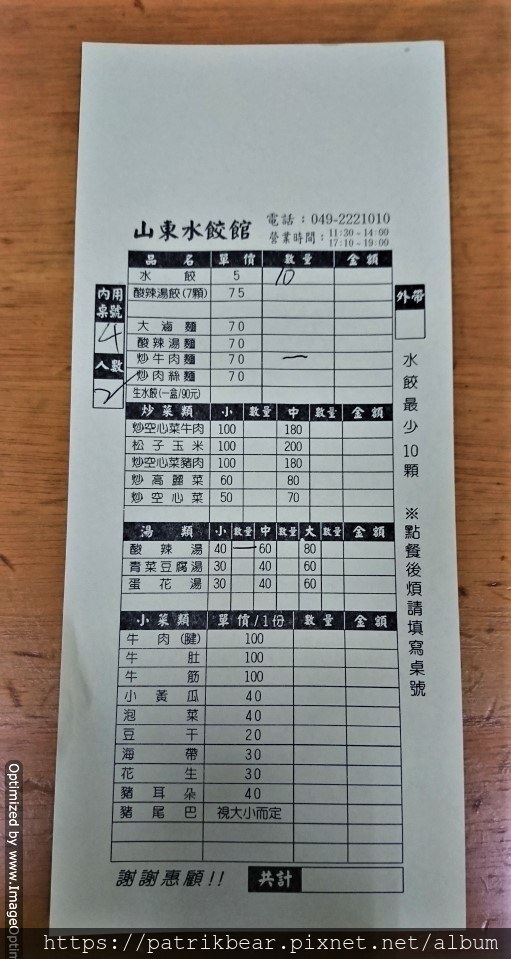 山東水餃館 電話：049-2221010
營業時間：11:30~14:00
17:10~19:00
品名 單價 數量 金額
水餃 5 10
酸辣湯餃(7顆) 75
大滷麵 70
酸辣湯麵 70
炒牛肉麵 70 一
炒肉絲麵 70
生水餃(一盒/90元)
內用桌號
4
人數
2
外帶
水餃最少10顆 ※點餐後煩請填寫桌號
炒菜類 小 數量 中 數量 金額
炒空心菜牛肉 100 180
松子玉米 100 200
炒空心菜豬肉 100 180
炒高麗菜 60 80
炒空心菜 50 70
湯類 小 數量 中 數量 大 數量 金額
酸辣湯 40 一 60 80
青菜豆腐湯 30 40 60
蛋花湯 30 40 60
小菜類 單價/1份 數量 金額
牛肉(腱) 100
牛肚 100
牛筋 100
小黃瓜 40
泡菜 40
豆干 20
海帶 30
花生 30
豬耳朵 40
豬尾巴 視大小而定
謝謝惠顧!! 共計
Optimized by www.ImageOptim
https://patrikbear.pixnet.net/album